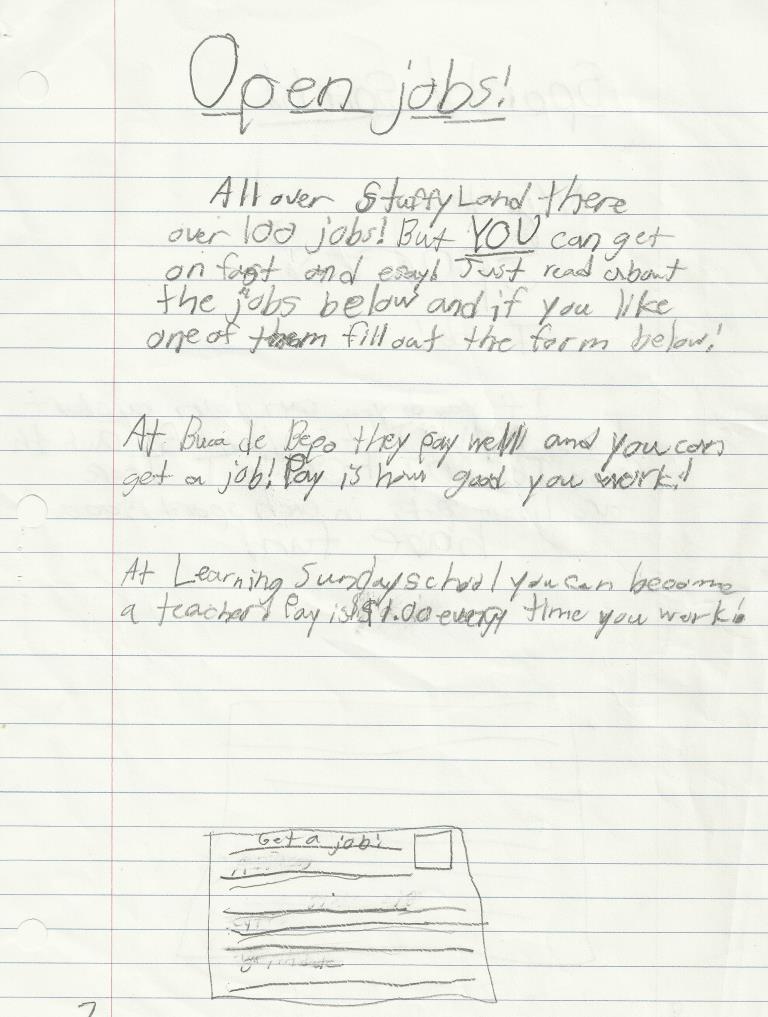 Open jobs!
All over Stuffy Land there
over 100 jobs! But YOU can get
on fast and esay! Just read about
the jobs below and if you like
one of them fill out the form below!
At Buca de Bepo they pay well and you can
get a job! Pay is how good you work!
At Learning Sunday school you can become
a teacher! Pay is $1.00 every time you work!
Get a job!
7